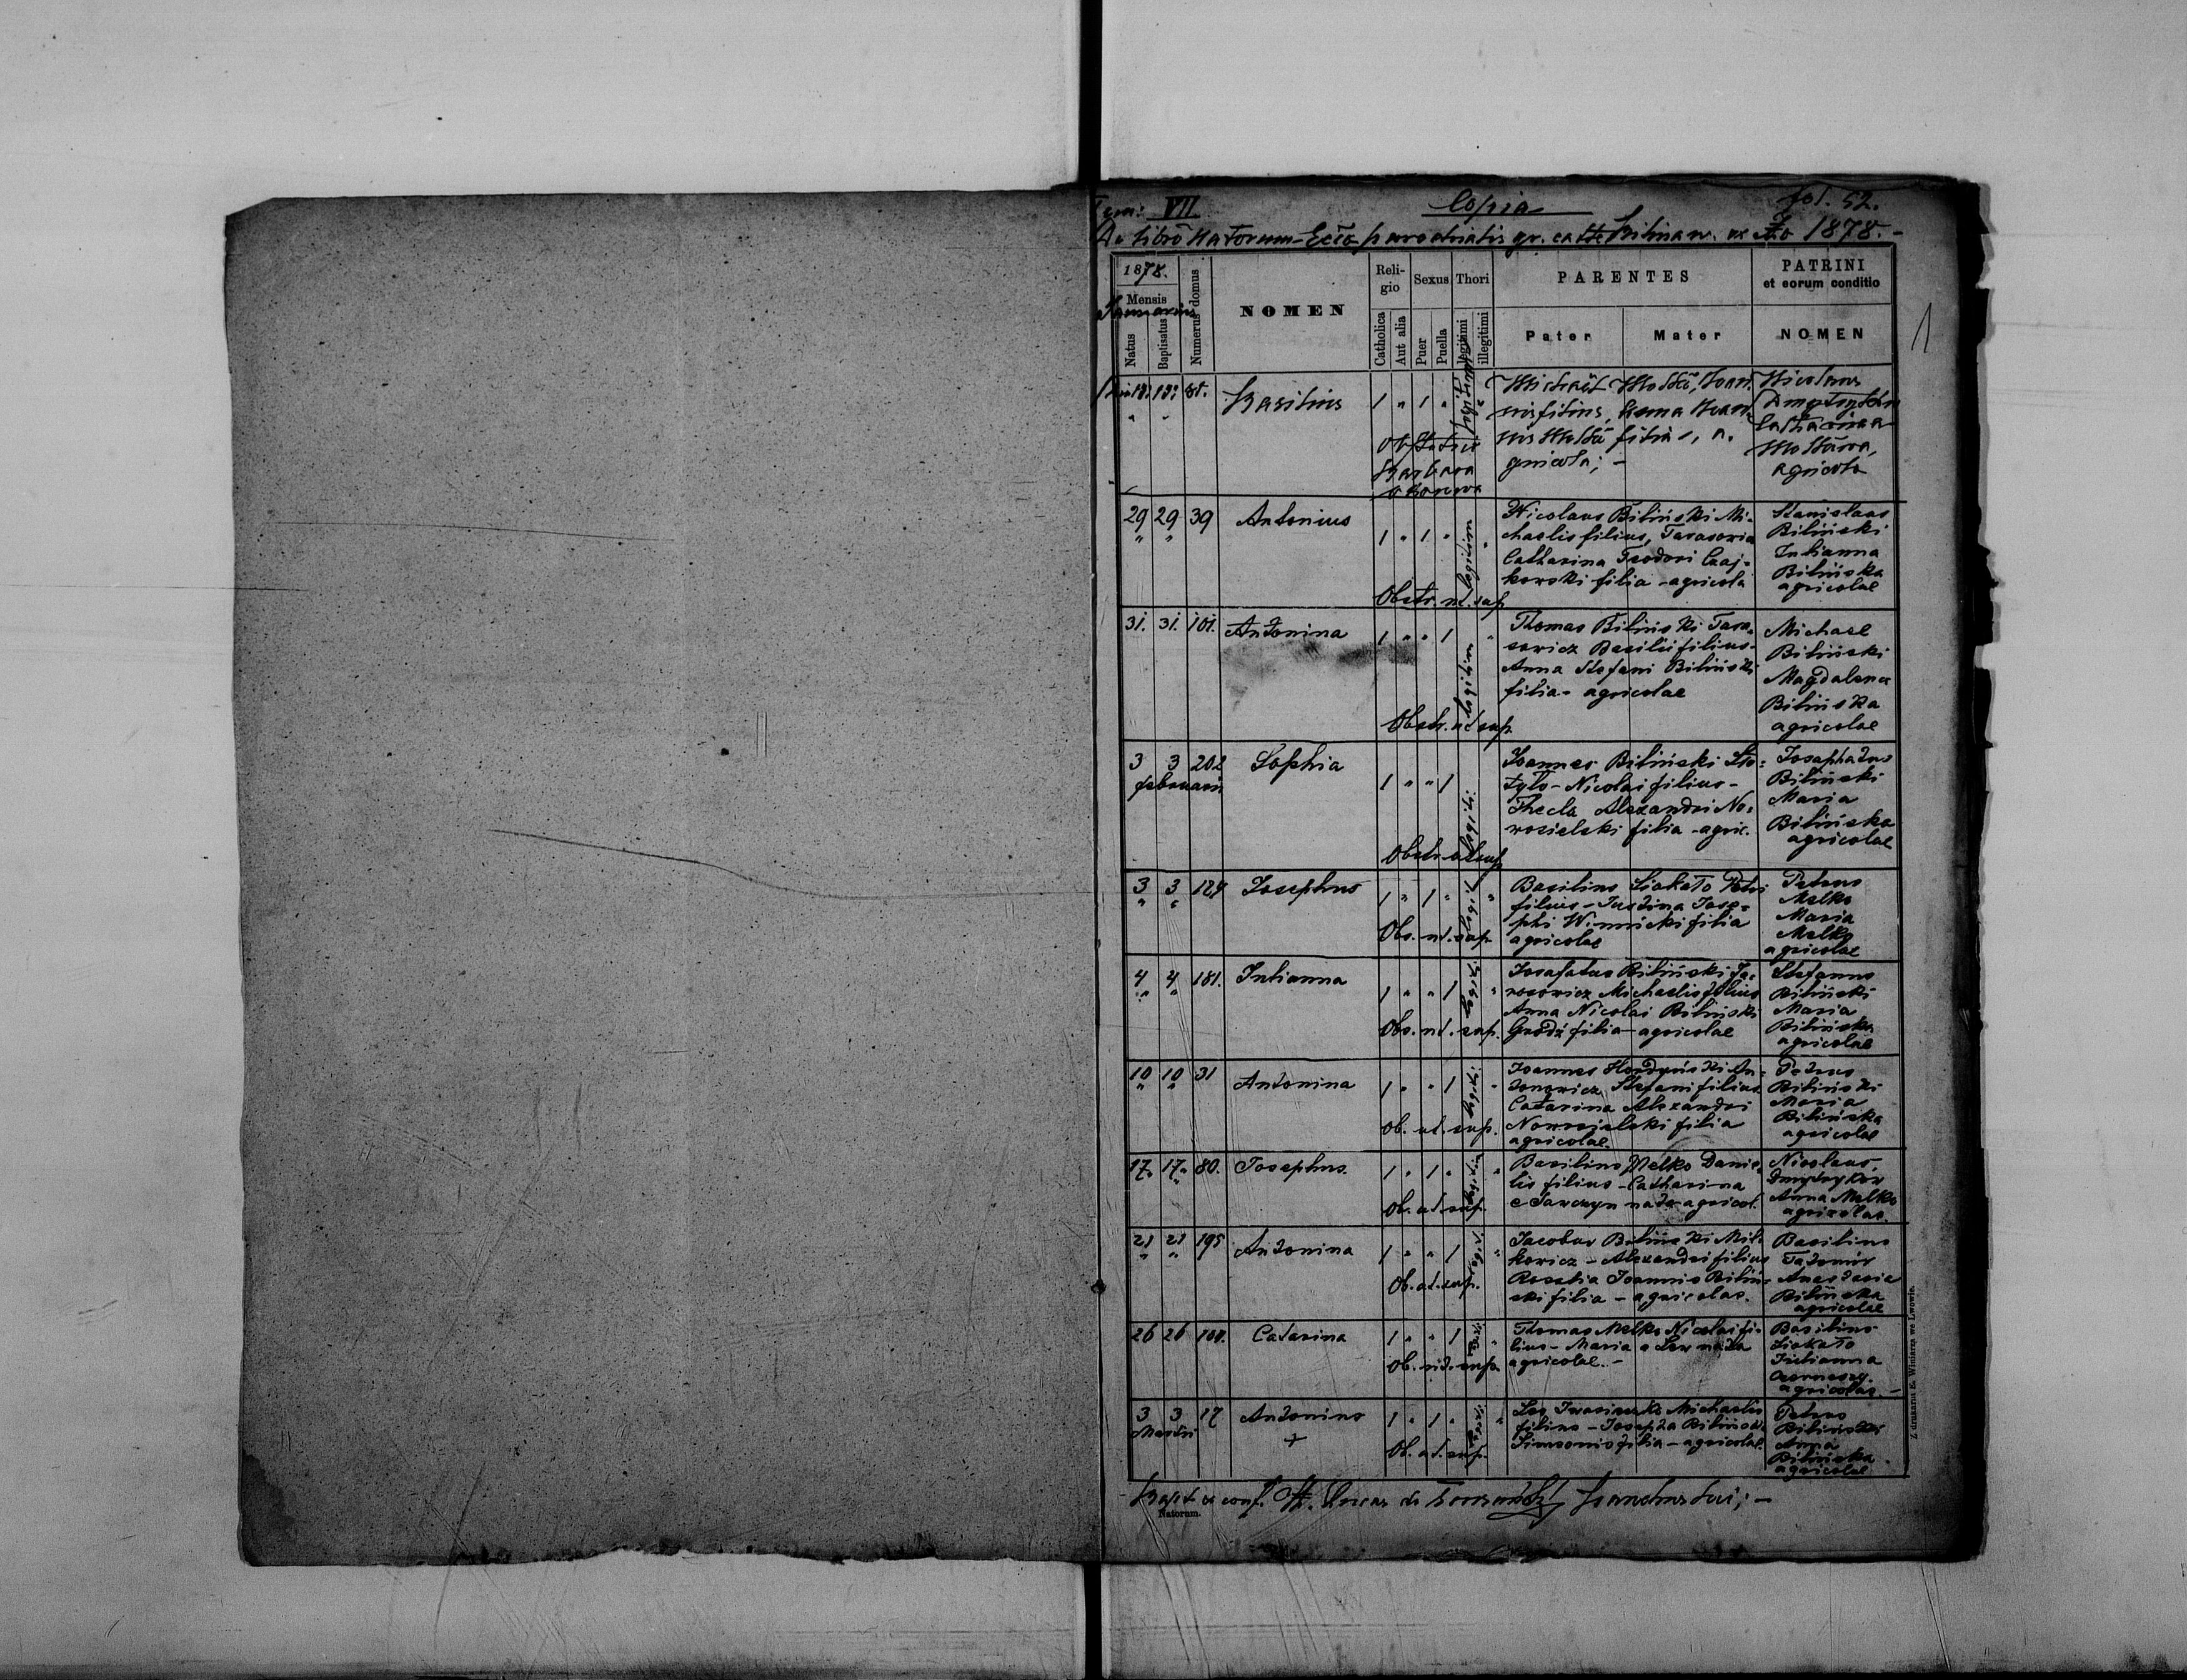 Tom: VII Copia fol. 52.
De libro Natorum Eccl. parochialis gr. cath. Bilinæ ex Ao 1878.-
1878.
Mensis
Januarius
Natus
Baptisatus
Numerus domus
NOMEN
Religio
Catholica
Aut alia
Sexus
Puer
Puella
Thori
legitimi
illegitimi
PARENTES
Pater
Mater
PATRINI
et eorum conditio
NOMEN
1
13. Basilius 1 " 1 "
Michaël
nis filius, Anna
nis filia, a-
gricola; -
Obstetrix
Barbara
Nicolaus
Catharina
agricola
29 29 39 Antonius 1 " 1 " legitim "
Nicolaus Biliński Mi-
chaelis filius, Tarasowicz
Catharina Teodori Czaj-
kowski filia - agricola
Obstr. ut. sup.
Stanislaus
Biliński
Julianna
Bilińska
agricolae
31. 31. 101. Antonina 1 " " 1 legitim "
Thomas Biliński Tara-
sowicz Basilii filius-
Anna Stefani Biliński
filia - agricolae
Obstr. ut sup.
Michael
Biliński
Magdalena
Bilińska
agricolae
3 3 202 Sophia 1 " " 1 legiti:
februarii
Joannes Biliński Sto-
tylo - Nicolai filius -
Thecla Alexandri No-
wosielski filia - agric.
Obstr. ut sup
Josaphatus
Biliński
Maria
Bilińska
agricolae
3 3 124 Josephus 1 " 1 " legit "
Basilius Siokało Petri
filius - Justina Jose-
phi Winnicki filia
agricolae
Obs. ut. sup.
Petrus
Melko
Maria
Melko
agricolae
4 4 181. Julianna 1 " " 1 legiti "
Josafatus Biliński Ja-
rosowicz Michaelis filius
Anna Nicolai Biliński
Grodź filia - agricolae
Obs. ut. sup.
Stefanus
Biliński
Maria
Bilińska
agricolae
10 10 31 Antonina 1 " " 1 legiti "
Joannes Hordyński An-
tonowicz Stefani filius
Catarina Alexandri
Nowosielski filia
agricolae
Ob. ut. sup.
Petrus
Biliński
Maria
Bilińska
agricolae
17. 17. 80. Josephus 1 " 1 " legitim "
Basilius Melko Danie-
lis filius - Catharina
e Jarczyn nata - agricol.
Ob. ut sup.
Nicolaus
Dmytryków
Anna Melko
agricolae.
21 21 195 Antonina 1 " " 1 legit "
Jacobus Biliński Mil-
kowicz - Alexandri filius
Rosalia Joannis Biliń-
ski filia - agricolae.
Ob. ut. sup.
Basilius
Tatomir
Anastasia
Bilińska
agricolae
26 26 100. Catarina 1 " " 1 legit "
Thomas Melko Nicolai fi-
lius - Maria e Lew nata
agricolae. -
Ob. ut. supra
Basilius
Siokało
Julianna
agricolae. -
3 3 17 Antonius 1 " 1 " legit "
Martii +
Leo Michaelis
filius - Josepha Biliński
Simeonis filia - agricolae
Ob. ut. sup.
Petrus
Biliński
Anna
Bilińska
agricolae
Bapt. et conf.
Natorum.
Z drukarni E. Winiarza we Lwowie.